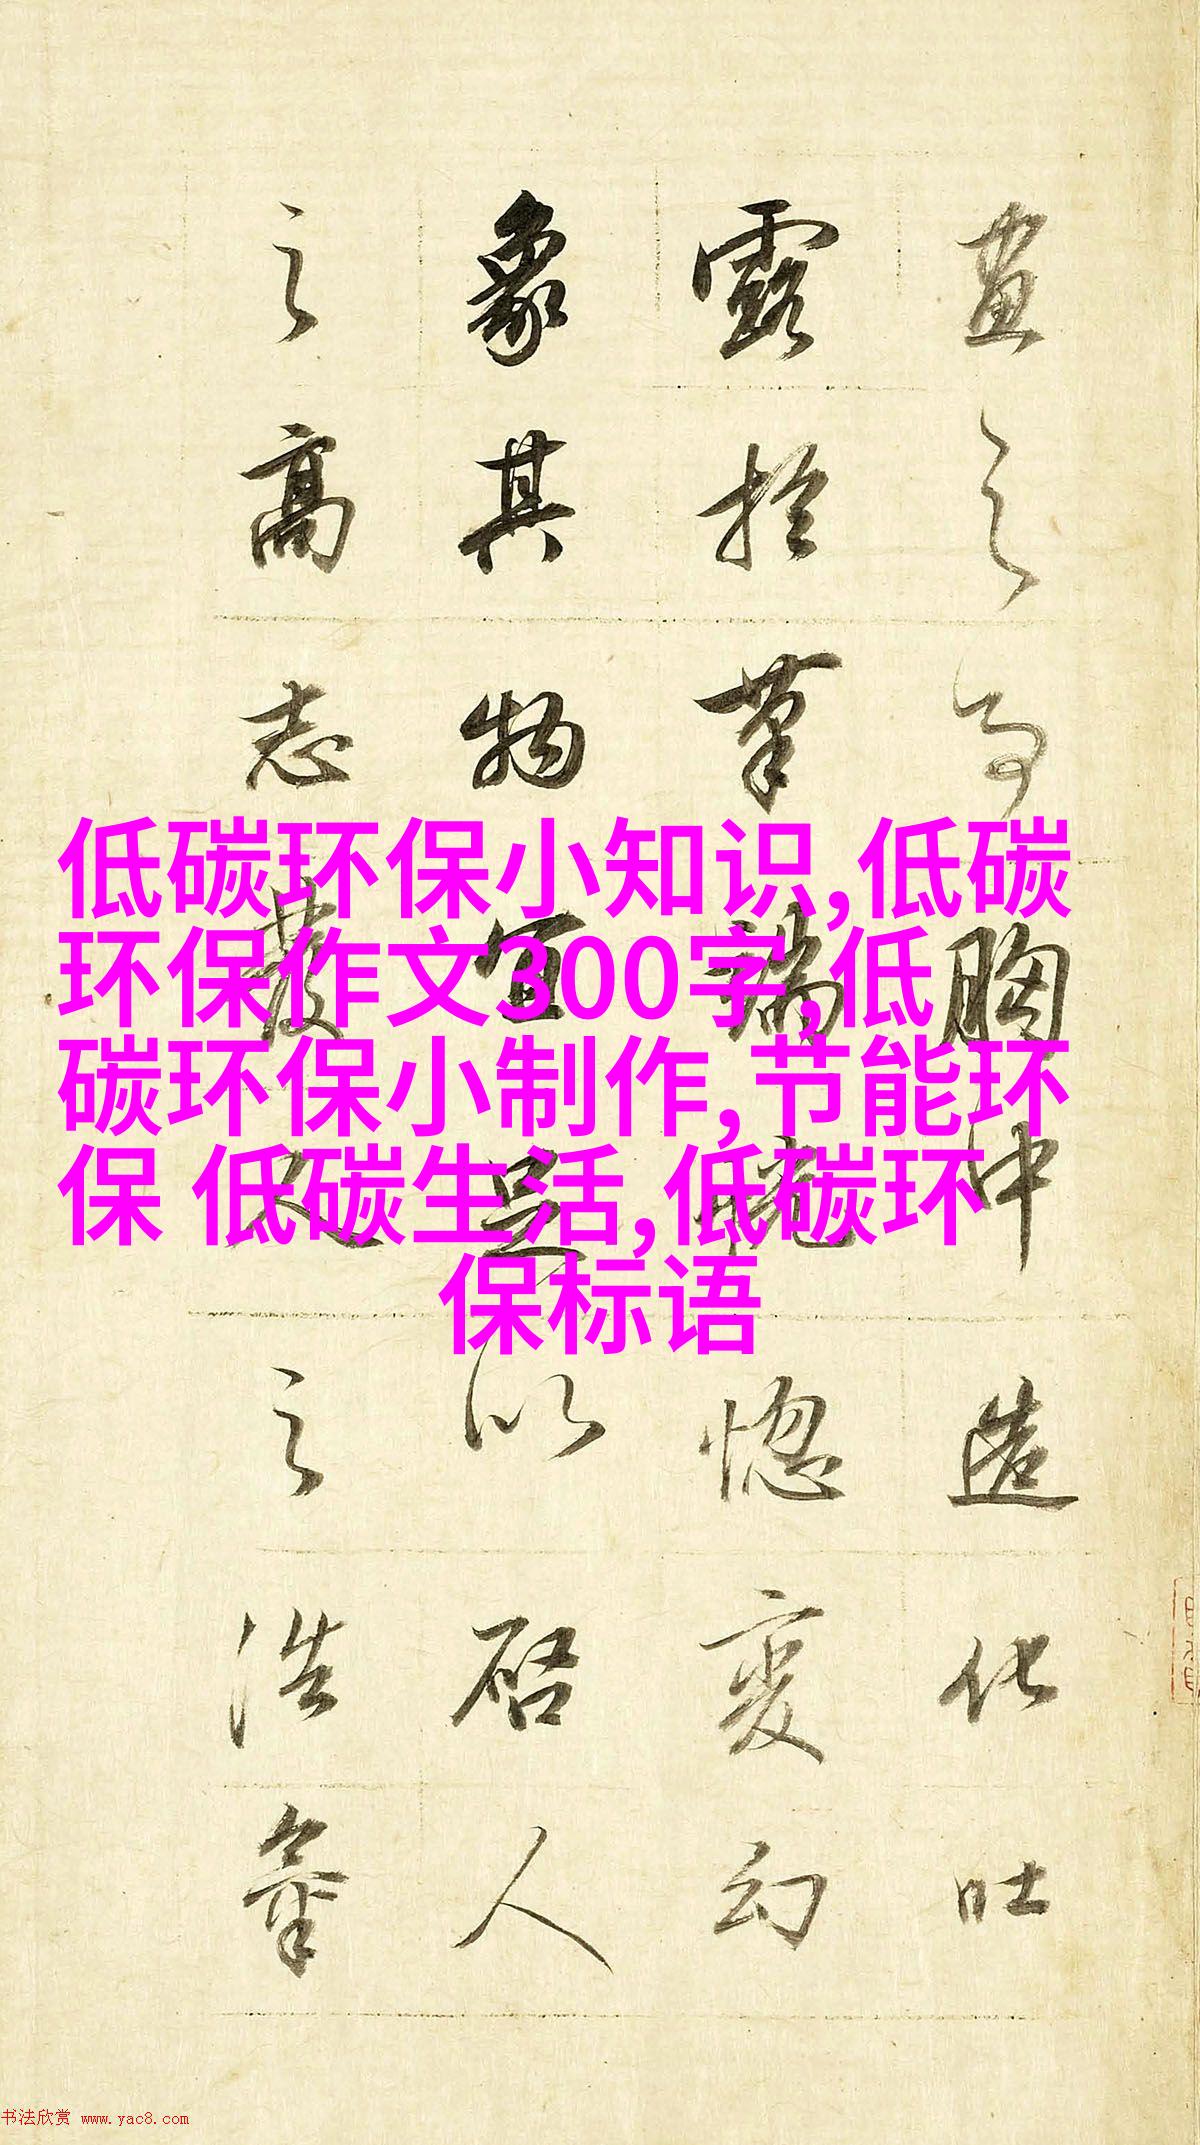 畫之胸中造化吐
露於筆端恍惚變幻
象其物宜足以啓人
之高志發之浩氣
低碳环保小知识,低碳
环保作文300字,低
碳环保小制作,节能环
保 低碳生活,低碳环
保标语
书法欣赏 www.yac8.com